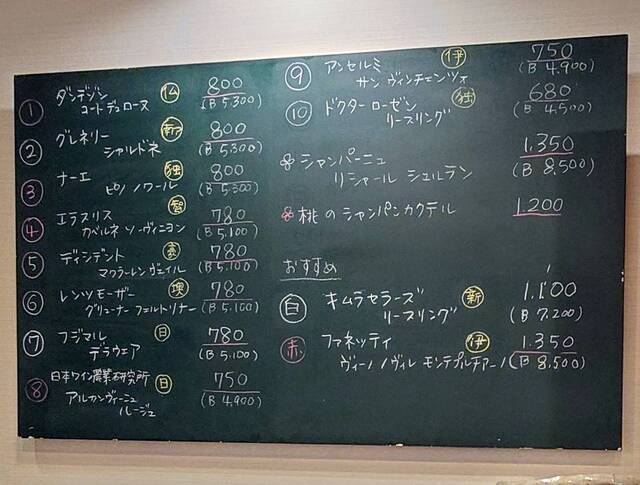 ① ダンデゾン ㊋仏 800
コートデュローヌ (B 5,300)
② グレネリー 南ア 800
シャルドネ (B 5,300)
③ ナーエ 独 800
ピノ ノワール (B 5,300)
④ エラスリス 智 780
カベルネ ソーヴィニヨン (B 5,100)
⑤ ディンデント 豪 780
マクラーレンヴェイル (B 5,100)
⑥ レンツモーザー 墺 780
グリューナーフェルトリナー (B 5,100)
⑦ フジマル 日 780
デラウェア (B 5,100)
⑧ 日本ワイン農業研究所 日 750
アルカンヴィーニュ (B 4,900)
ルージュ
⑨ アンセルミ 伊 750
サン ヴィンチェンツォ (B 4,900)
⑩ ドクターローゼン 独 680
リースリング (B 4,500)
シャンパーニュ 1.350
リシャール シュルラン (B 8,500)
桃のシャンパンカクテル 1.200
おすすめ
白 キムラセラーズ 新 1.100
リースリング (B 7,200)
赤 ファネッティ 伊 1.350
ヴィーノノヴィレ モンテプルチアーノ (B 8,500)